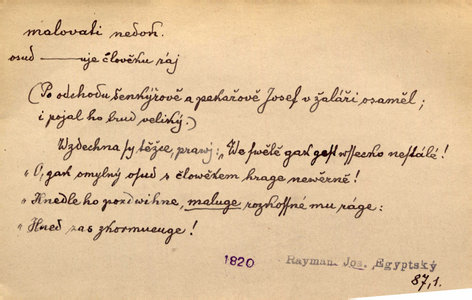 malovati nedok.
osud ——uje člověku ráj
(Po odchodu šenkýřově a pekařově Josef v žaláři osaměl;
i pojal ho trud veliký.)
Wzdechna sy těžce, prawj: „We swětě gak gest wssecko nestálé!
„O, gak omylný osud s člowěkem hrage newěrně!
„Hnedle ho pozdwihne, maluge rozkossné mu ráge:
„Hned zas zkormucuge!
1820 Rayman. Jos. Egyptský
87,1.